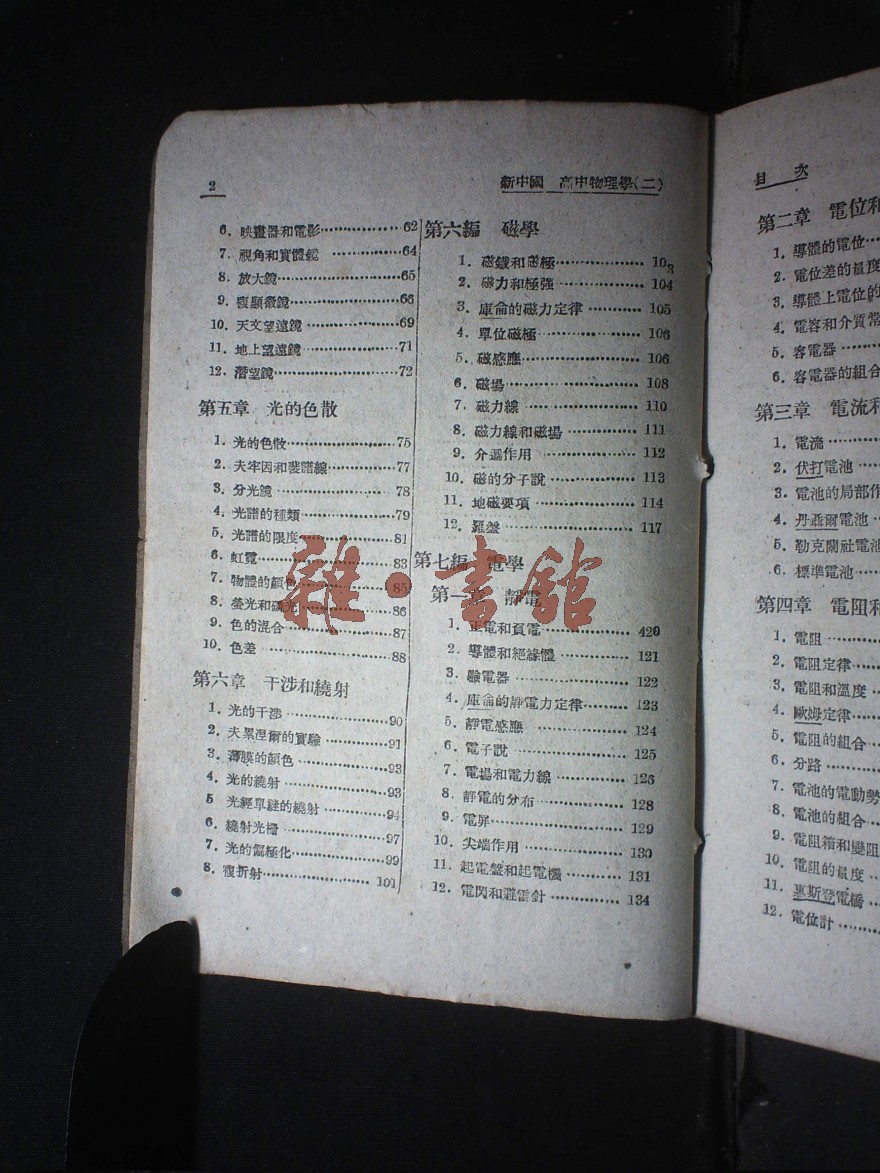 2
新中國 高中物理學(二)
6. 映畫器和電影 62
7. 視角和實體鏡 64
8. 放大鏡 65
9. 複顯微鏡 66
10. 天文望遠鏡 69
11. 地上望遠鏡 71
12. 潛望鏡 72
第五章 光的色散
1. 光的色散 75
2. 夫牢因和斐譜線 77
3. 分光鏡 78
4. 光譜的種類 79
5. 光譜的限度 81
6. 虹霓 83
7. 物體的顏色 85
8. 螢光和磷光 86
9. 色的混合 87
10. 色差 88
第六章 干涉和繞射
1. 光的干涉 90
2. 夫累涅爾的實驗 91
3. 薄膜的顏色 93
4. 光的繞射 93
5 光經單縫的繞射 94
6. 繞射光柵 97
7. 光的偏極化 99
8. 複折射 101
第六編 磁學
1. 磁鐵和磁極 103
2. 磁力和極強 104
3. 庫侖的磁力定律 105
4. 單位磁極 106
5. 磁感應 106
6. 磁場 108
7. 磁力線 110
8. 磁力線和磁場 111
9. 介遏作用 112
10. 磁的分子說 113
11. 地磁要項 114
12. 羅盤 117
第七編 電學
第一章 靜電
1. 正電和負電 420
2. 導體和絕緣體 121
3. 驗電器 122
4. 庫侖的靜電力定律 123
5. 靜電感應 124
6. 電子說 125
7. 電場和電力線 126
8. 靜電的分布 128
9. 電屏 129
10. 尖端作用 130
11. 起電盤和起電機 131
12. 電閃和避雷針 134
雜·書館
目 次
第二章 電位和
1. 導體的電位
2. 電位差的量度
3. 導體上電位的
4. 電容和介質常
5. 容電器
6. 容電器的組合
第三章 電流和
1. 電流
2. 伏打電池
3. 電池的局部作
4. 丹聶爾電池
5. 勒克蘭社電池
6. 標準電池
第四章 電阻和
1. 電阻
2. 電阻定律
3. 電阻和溫度
4. 歐姆定律
5. 電阻的組合
6. 分路
7. 電池的電動勢
8. 電池的組合
9. 電阻箱和變阻
10. 電阻的量度
11. 惠斯登電橋
12. 電位計